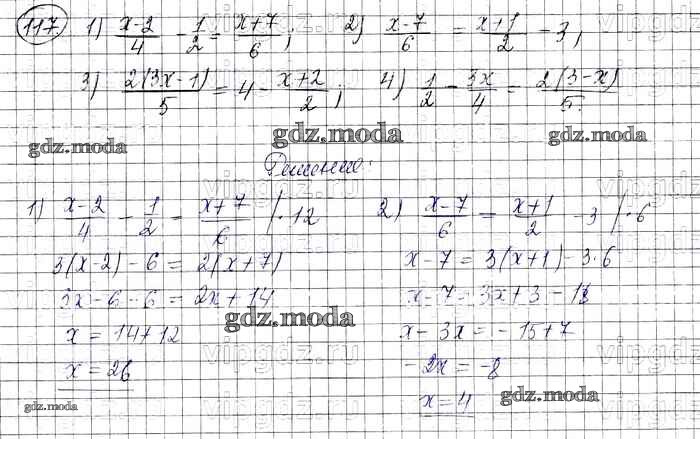 117. 1) (x-2)/4 - 1/2 = (x+7)/6; 2) (x-7)/6 = (x+1)/2 - 3;
3) 2(3x-1)/5 = 4 - (x+2)/2; 4) 1/2 - 3x/4 = 2(3-x)/5.
gdz.moda gdz.moda gdz.moda
Решение:
1) (x-2)/4 - 1/2 = (x+7)/6 /·12
3(x-2) - 6 = 2(x+7)
3x - 6 - 6 = 2x + 14
x = 14 + 12
x = 26
2) (x-7)/6 = (x+1)/2 - 3 /·6
x - 7 = 3(x+1) - 3·6
x - 7 = 3x + 3 - 18
x - 3x = -15 + 7
-2x = -8
x = 4
gdz.moda
gdz.moda
gdz.moda
vipgdz.ru